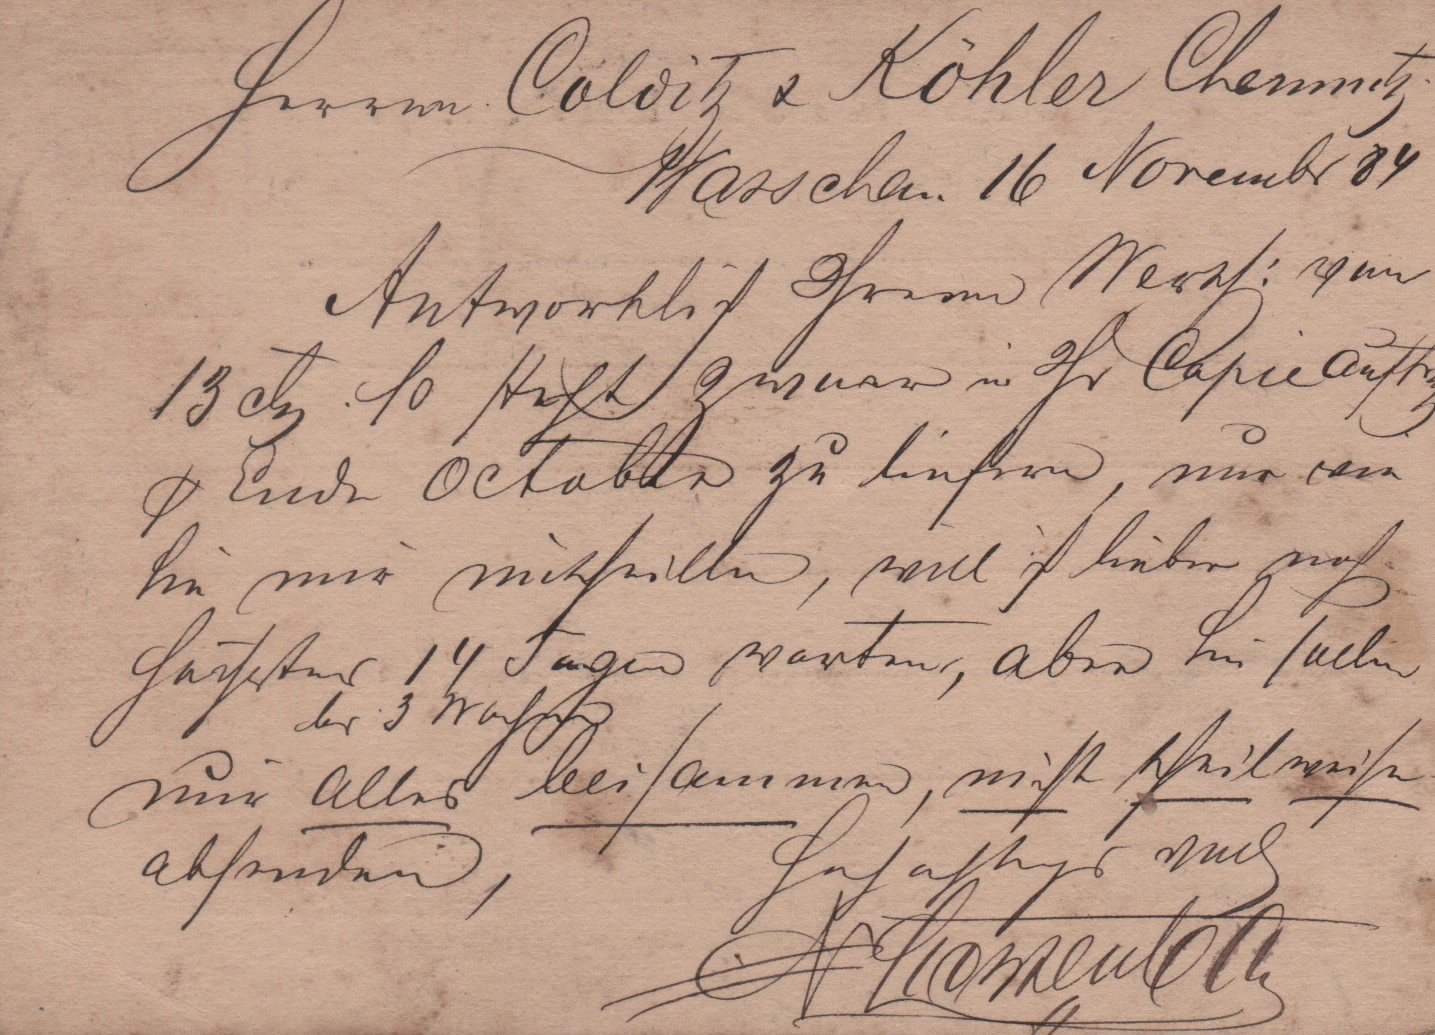 Herren Colditz & Köhler Chemnitz.
Warschau 16 November 84
Antwortlich Ihrem Werth: vom
13 ct. so steht zwar in Ihr Copie Auftrag
Ende October zu liefern, nur wie
Sie mir mittheillen, will ich lieber noch
14 Tagen warten, aber Sie sollen
der 3 Wochen
mir alles beisammen, nicht theilweise
absenden,
Hochachtungsvoll